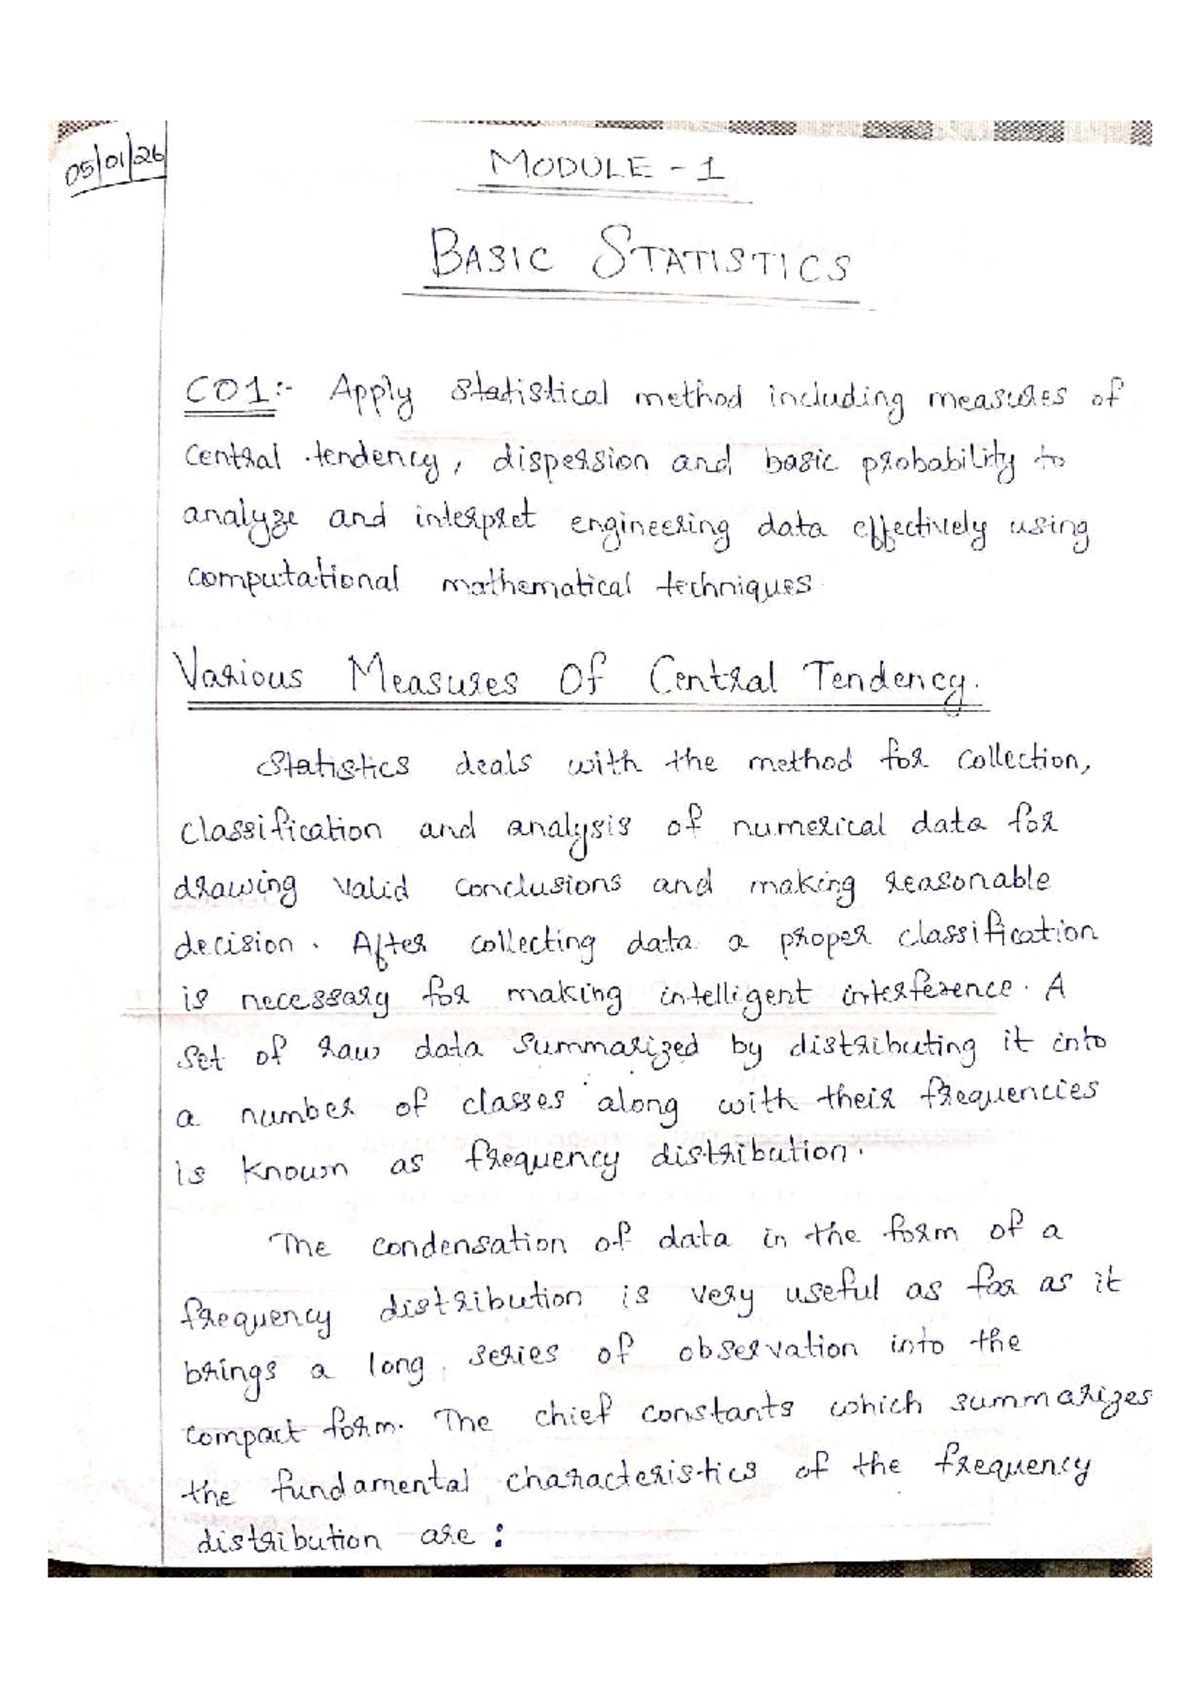 05/01/26
MODULE - 1
BASIC STATISTICS
CO1:- Apply statistical method including measures of
central tendency, dispersion and basic probability to
analyze and interpret engineering data effectively using
computational mathematical techniques
Various Measures Of Central Tendency.
Statistics deals with the method for collection,
classification and analysis of numerical data for
drawing valid conclusions and making reasonable
decision. After collecting data a proper classification
is necessary for making intelligent interference. A
set of raw data summarized by distributing it into
a number of classes along with their frequencies
is known as frequency distribution.
The condensation of data in the form of a
frequency distribution is very useful as far as it
brings a long series of observation into the
compact form. The chief constants which summarizes
the fundamental characteristics of the frequency
distribution are :